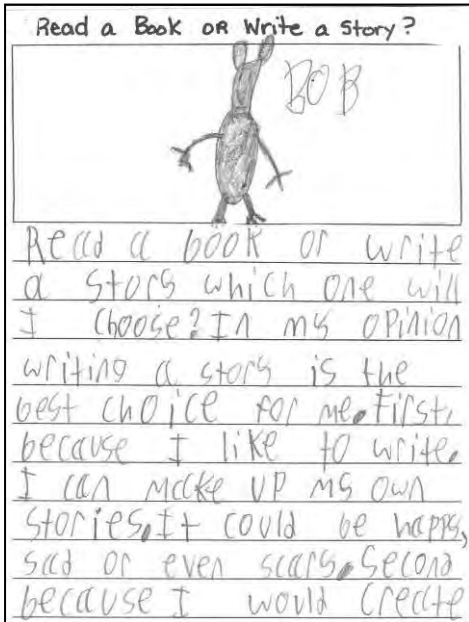 Read a Book or Write a Story?
BOB
Read a book or write
a story which one will
I choose? In my opinion
writing a story is the
best choice for me. First,
because I like to write.
I can make up my own
stories. It could be happy,
sad or even scary. Second
because I would create